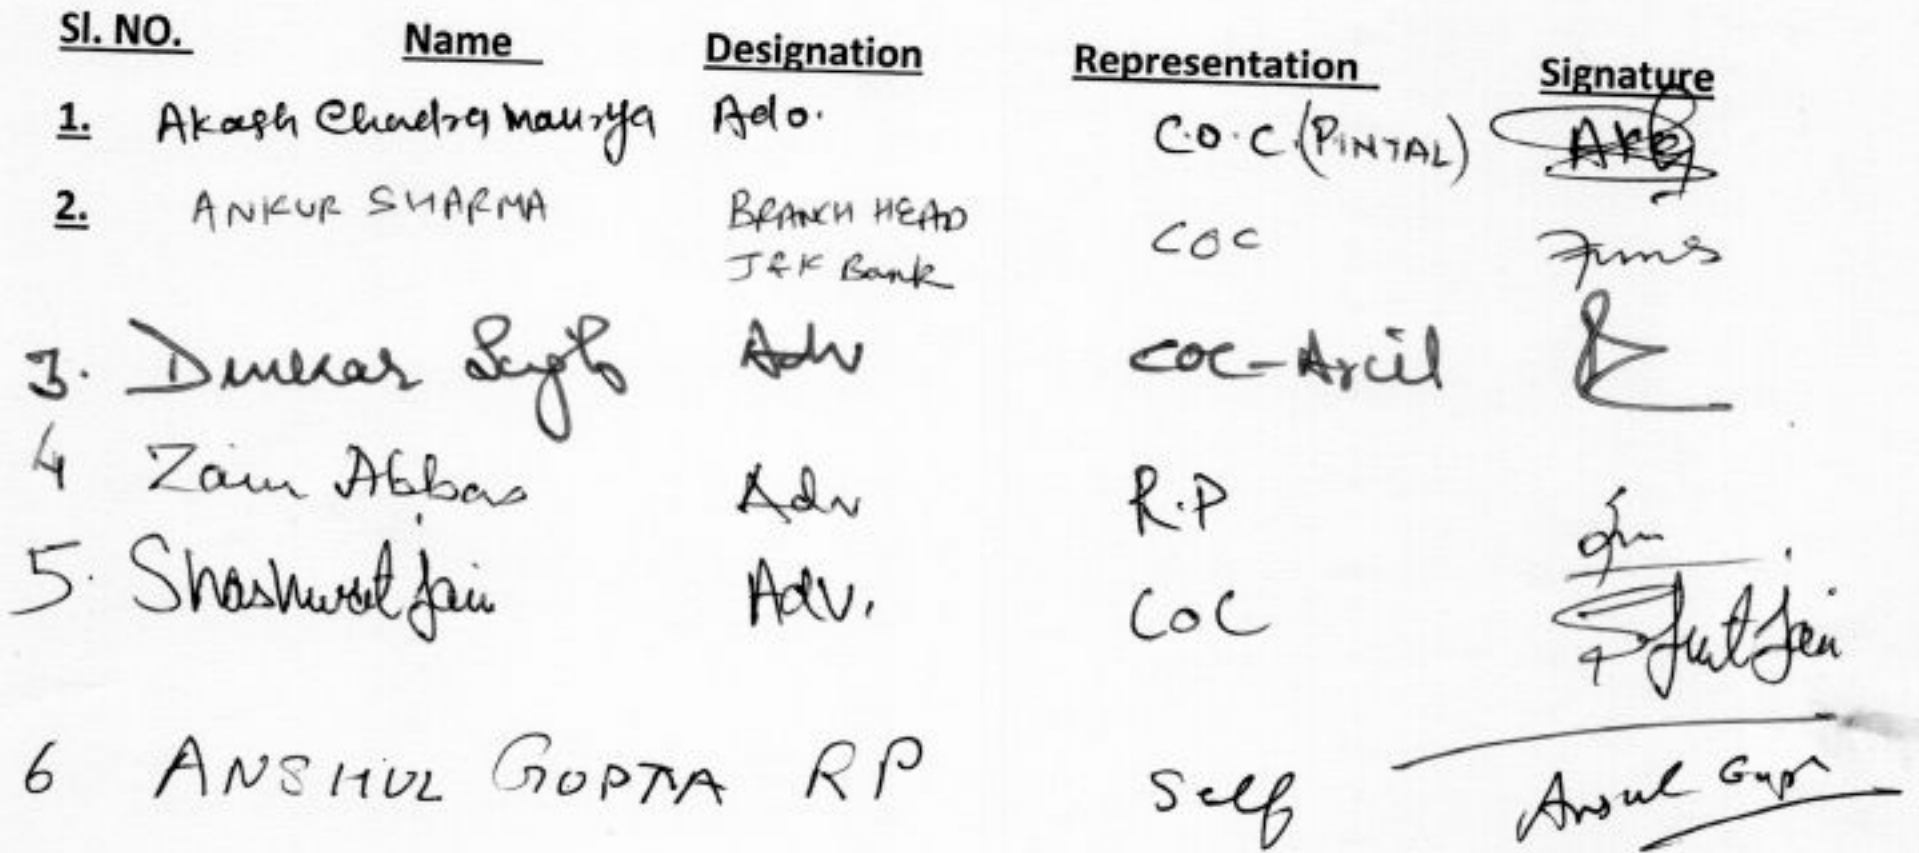 Sl. NO. Name Designation Representation Signature
1. Akash Chandra Maurya Adv. C.O.C.(PINTAL)
2. ANKUR SHARMA BRANCH HEAD COC
J&K Bank
3. Dinkar Singh Adv COC-Arcil
4 Zain Abbas Adv R.P
5. Shashwat Jain Adv. COC
6 ANSHUL GUPTA RP Self